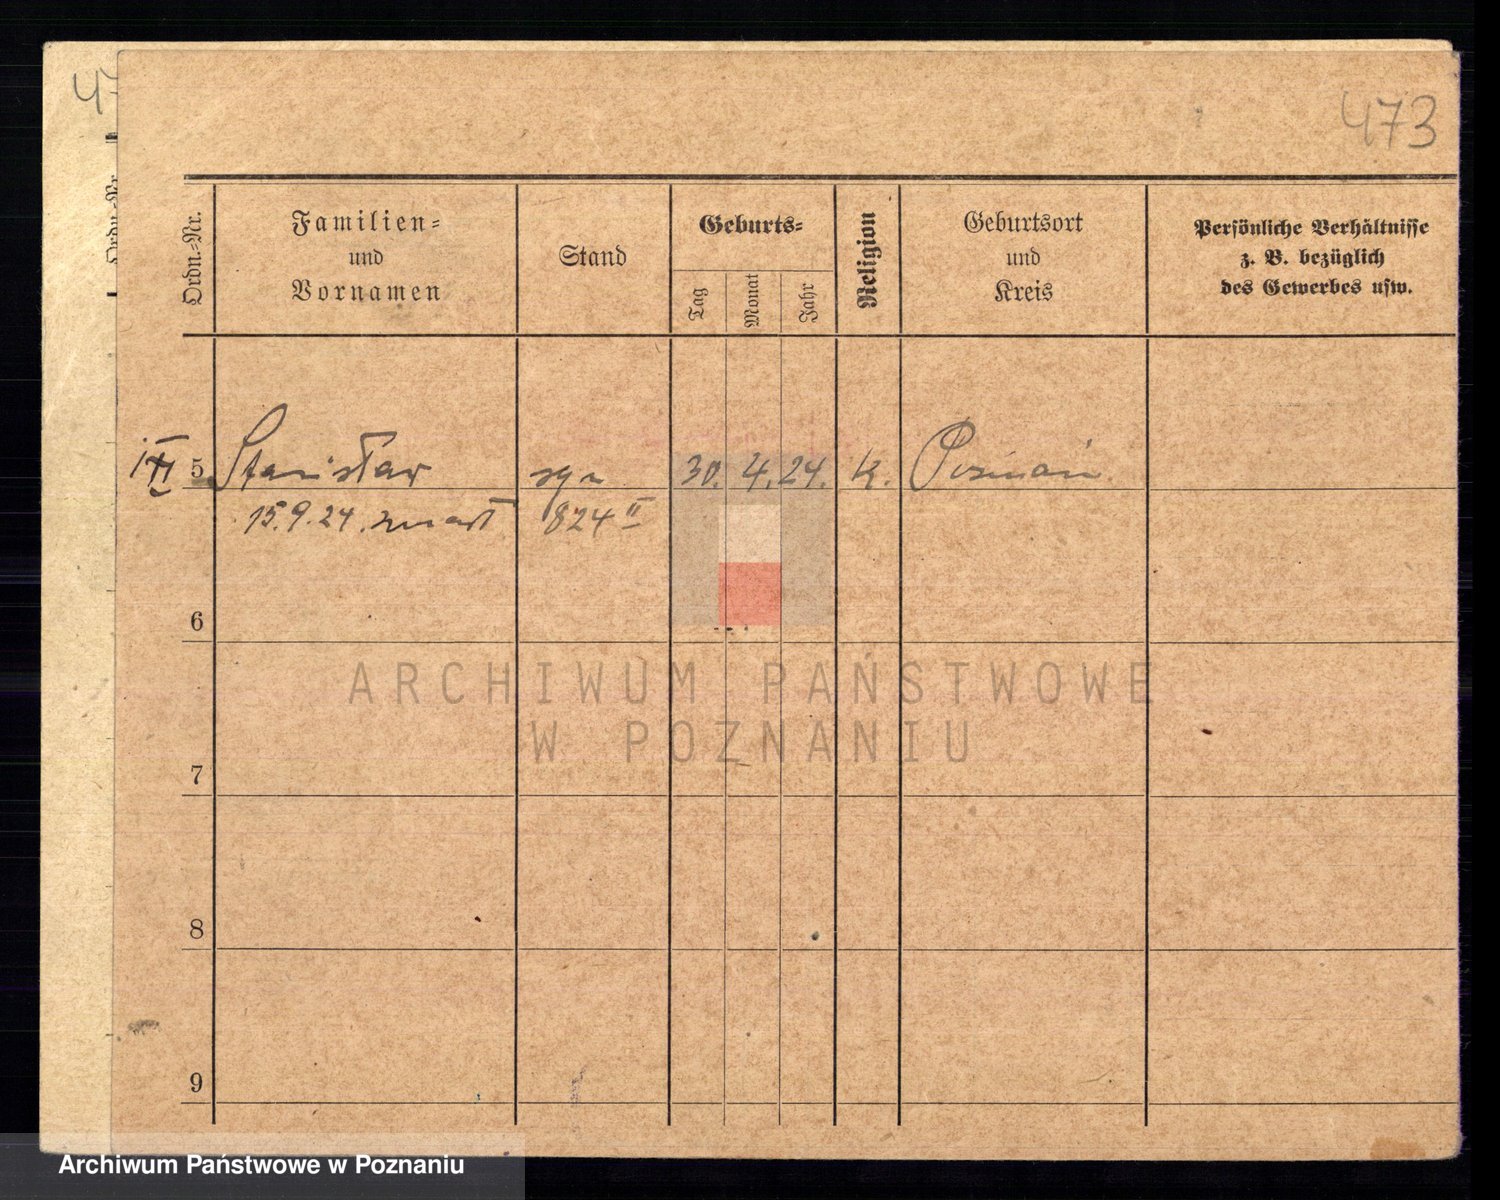 473
Ordn.-Nr.
Familien-
und
Vornamen
Stand
Geburts-
Tag
Monat
Jahr
Religion
Geburtsort
und
Kreis
Persönliche Verhältnisse
z. B. bezüglich
des Gewerbes usw.
5 Stanisław syn 30. 4. 24. k. Poznań
15.9.24 zmarł 824 II
6
ARCHIWUM PAŃSTWOWE
W POZNANIU
7
8
9
Archiwum Państwowe w Poznaniu